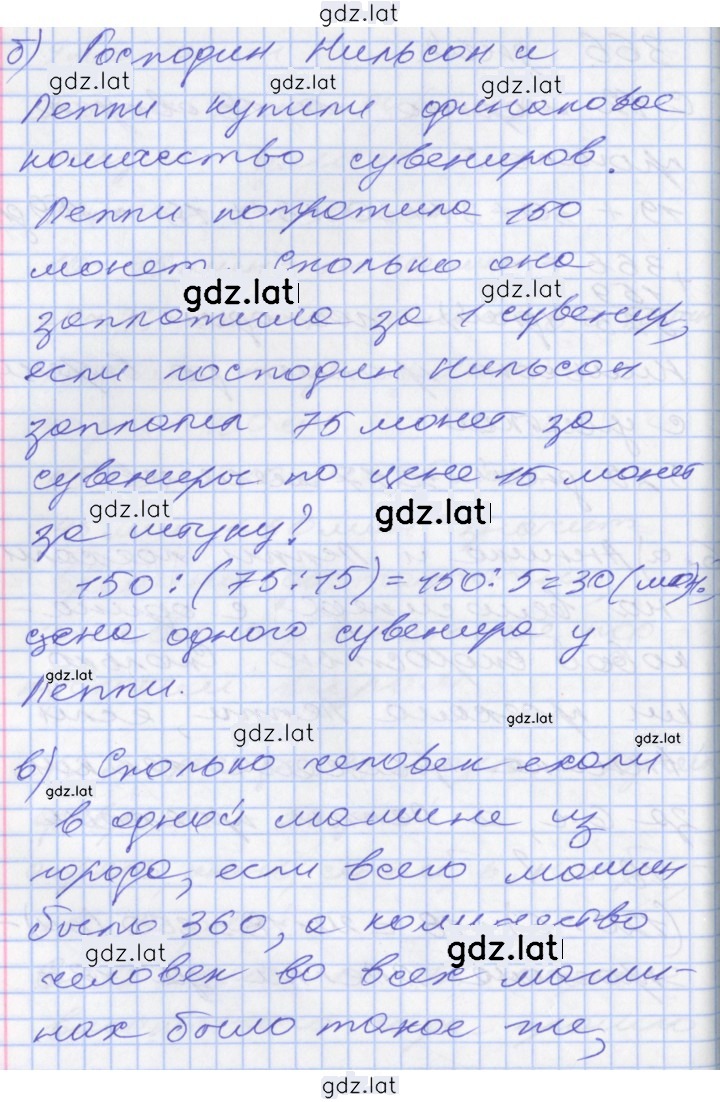 gdz.lat
б) Господин Нильсон и
gdz.lat gdz.lat gdz.lat
Пеппи купили одинаковое
количество сувениров.
Пеппи потратила 150
монет. Сколько она
gdz.lat gdz.lat
заплатила за 1 сувенир,
если господин Нильсон
заплатил 75 монет за
сувениры по цене 15 монет
gdz.lat gdz.lat
за штуку?
150:(75:15)=150:5=30(мон.)
цена одного сувенира у
gdz.lat
Пеппи.
gdz.lat gdz.lat gdz.lat
в) Сколько человек ехали
gdz.lat
в одной машине из
города, если всего машин
было 360, а количество
gdz.lat gdz.lat
человек во всех маши-
нах было такое же,
gdz.lat